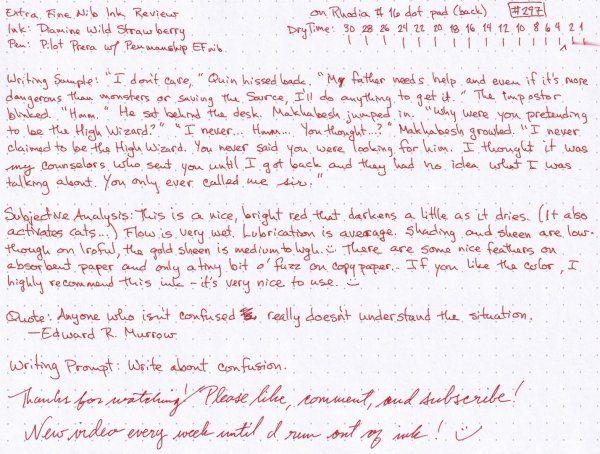 Extra Fine Nib Ink Review on Rhodia #16 dot pad (back) #297
Ink: Diamine Wild Strawberry Dry Time: 30 28 26 24 22 20 18 16 14 12 10 8 6 4 2 1
Pen: Pilot Prera w/ Penmanship EF nib.
Writing Sample: "I don't care," Quin hissed back. "My father needs help and even if it's more
dangerous than monsters or saving the Source, I'll do anything to get it." The impostor
blinked. "Hmm." He sat behind the desk. Makhabesh jumped in. "Why were you pretending
to be the High Wizard?" "I never... Hmm... You thought...?" Makhabesh growled. "I never
claimed to be the High Wizard. You never said you were looking for him. I thought it was
my counselors who sent you until I got back and they had no idea what I was
talking about. You only ever called me sir."
Subjective Analysis: This is a nice, bright red that darkens a little as it dries. (It also
activates cats...) Flow is very wet. Lubrication is average. Shading and sheen are low-
though on Iroful, the gold sheen is medium to high. :) There are some nice feathers on
absorbent paper and only a tiny bit o' fuzz on copy paper. If you like the color, I
highly recommend this ink - it's very nice to use. :)
Quote: Anyone who isn't confused really doesn't understand the situation.
—Edward R. Murrow
Writing Prompt: Write about confusion.
Thanks for watching! Please like, comment, and subscribe!
New video every week until I run out of ink! :)